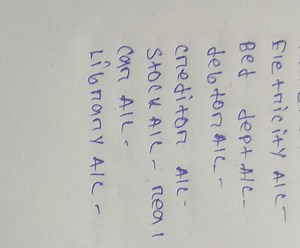 Eletricity A/C -
Bed dept A/C -
debtor A/C -
creditor A/C -
Stock A/C - real
Car A/C -
Library A/C -